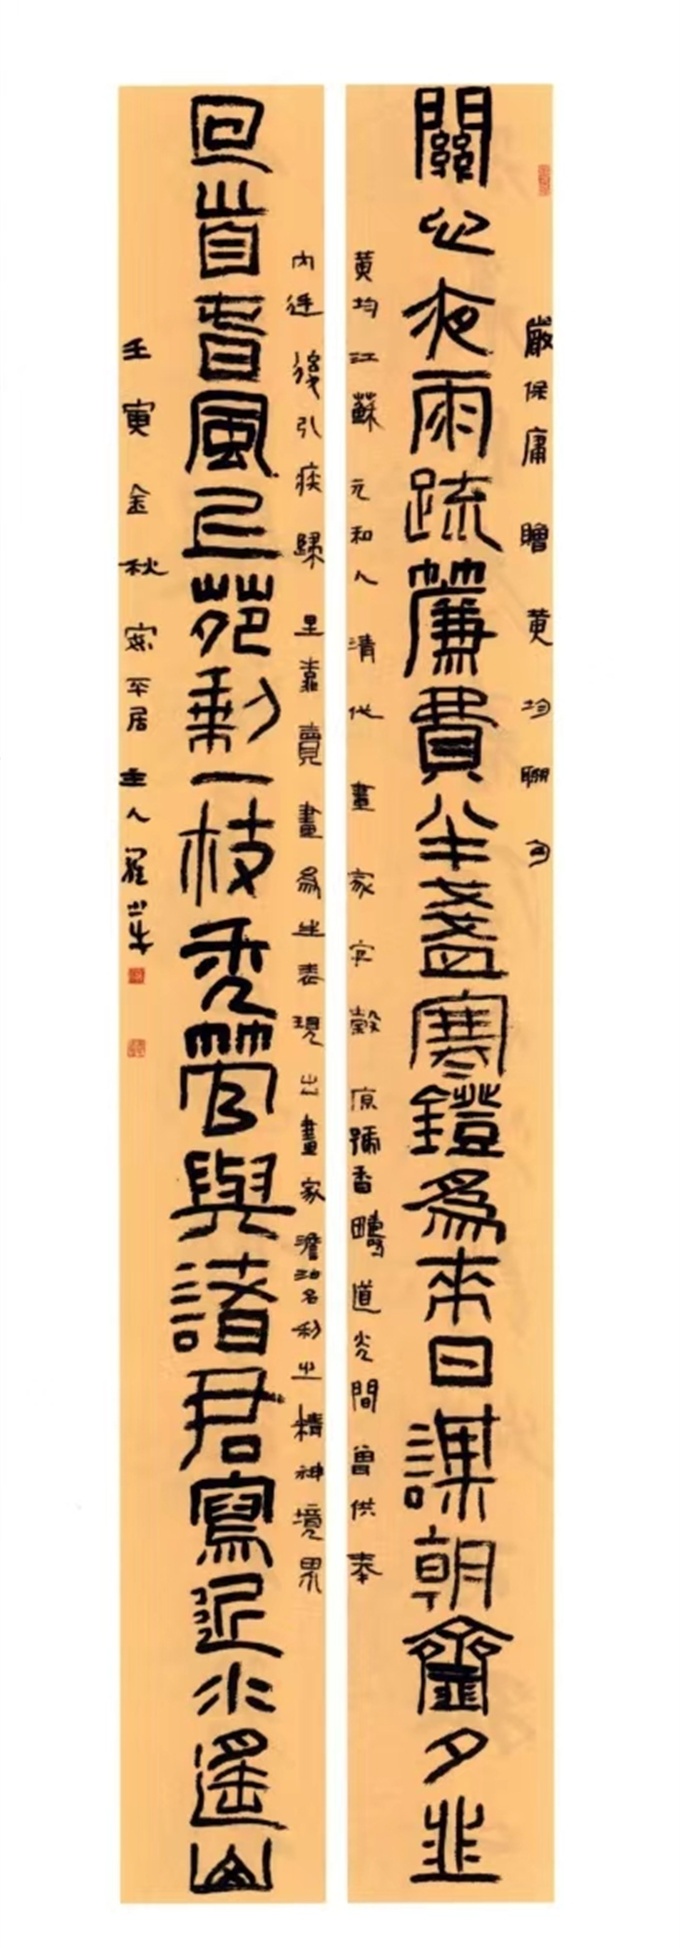 嚴保庸贈黃均聯句
關心夜雨疏簾費半盞寒鐙為來日課朝齏夕韭
黃均江蘇元和人清代畫家字穀原號香疇道光間曾供奉
內廷後引疾歸里靠賣畫為生表現出畫家澹泊名利之精神境界
回首春風上苑剩一枝秃管與諸君寫近水遙山
壬寅金秋平居主人翟